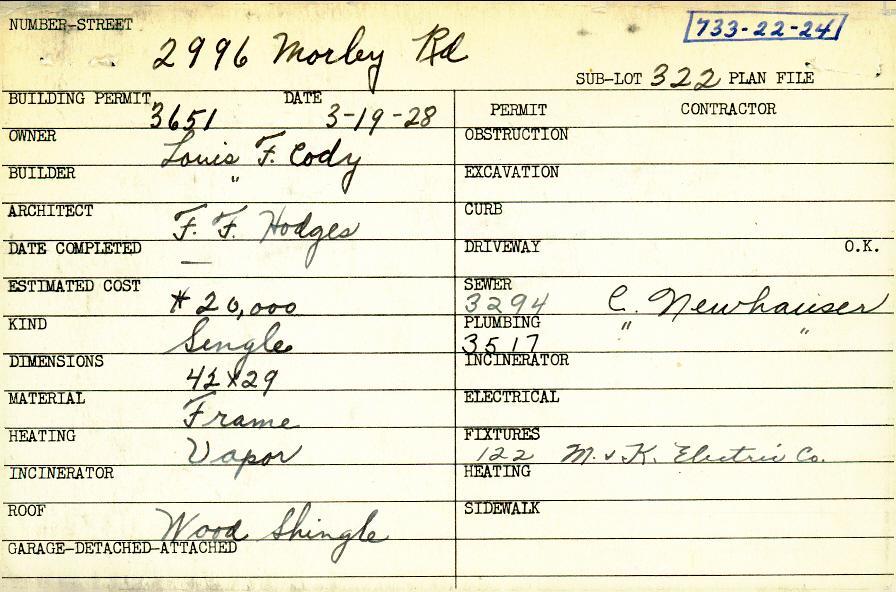 NUMBER-STREET
2996 Morley Rd
733-22-24
SUB-LOT 322 PLAN FILE
BUILDING PERMIT 3651 DATE 3-19-28
OWNER Louis F. Cody
BUILDER "
ARCHITECT F. F. Hodges
DATE COMPLETED —
ESTIMATED COST $20,000
KIND Single
DIMENSIONS 42x29
MATERIAL Frame
HEATING Vapor
INCINERATOR
ROOF Wood Shingle
GARAGE-DETACHED-ATTACHED
PERMIT CONTRACTOR
OBSTRUCTION
EXCAVATION
CURB
DRIVEWAY O.K.
SEWER
3294 C. Newhauser
PLUMBING " "
3517
INCINERATOR
ELECTRICAL
FIXTURES
122 M. & K. Electric Co.
HEATING
SIDEWALK